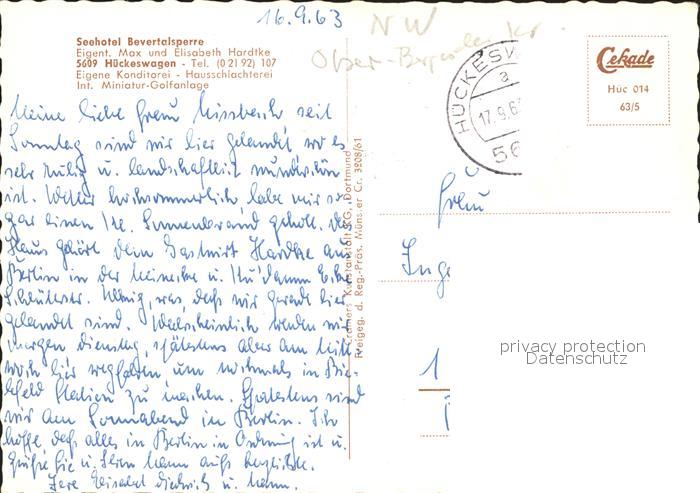 16.9.63
NW
Ober-
Seehotel Bevertalsperre
Eigent. Max und Elisabeth Hardtke
5609 Hückeswagen - Tel. (0 21 92) 107
Eigene Konditorei - Hausschlachterei
Int. Miniatur-Golfanlage
HÜCKESW
a
17.9.63
56
Cekade
Hüc 014
63/5
Meine liebe Frau seit
Sonntag sind wir hier gelandet wo es
sehr ruhig u. landschaftlich wunderschön
ist. Wetter hochsommerlich habe mir so-
gar einen kl. Sonnenbrand geholt. Das
Haus gehört dem Gastwirt Hardtke aus
Berlin in der Meineke u. Ku'damm Ecke
was, daß wir gerade hier
gelandet sind. Wahrscheinlich werden wir
morgen Dienstag, spätestens aber am Mitt-
woch hier wegfahren um nochmals in Bie-
lefeld Station zu machen. Spätestens sind
wir am Sonnabend in Berlin. Ich
hoffe daß alles in Berlin in Ordnung ist u.
grüße Sie u. Ihren Mann aufs herzlichste.
Ihre Elisabet u. Mann.
Cramers Kunstanstalt KG., Dortmund
Freigeg. d. Reg.-Präs. Münster Cr. 3808/61
Frau
Inge
1
privacy protection
Datenschutz